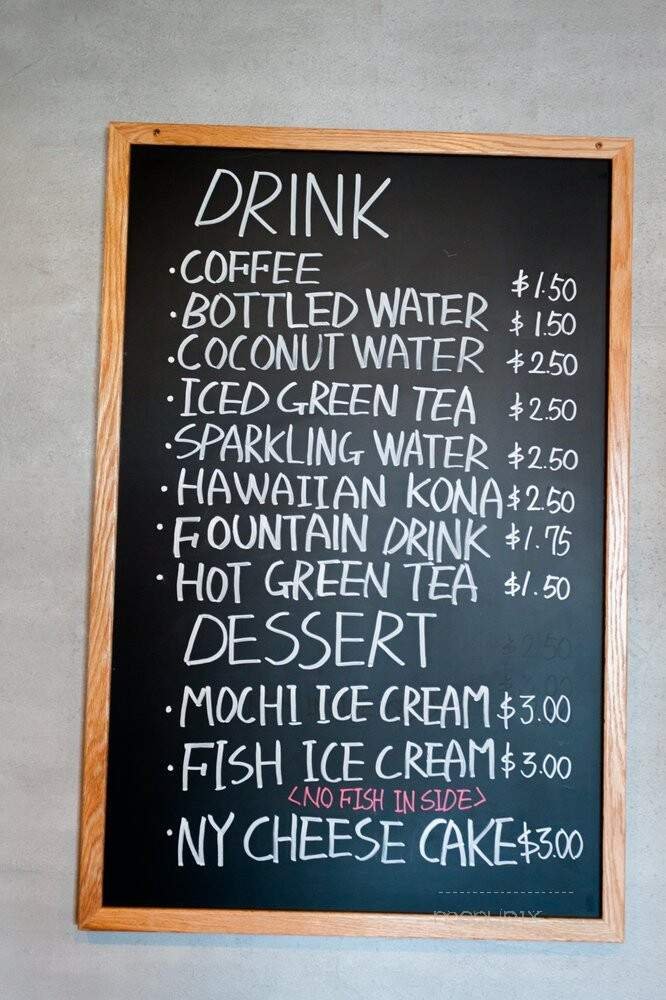 DRINK
·COFFEE $1.50
·BOTTLED WATER $1.50
·COCONUT WATER $2.50
·ICED GREEN TEA $2.50
·SPARKLING WATER $2.50
·HAWAIIAN KONA $2.50
·FOUNTAIN DRINK $1.75
·HOT GREEN TEA $1.50
DESSERT
$2.50
·MOCHI ICE CREAM $3.00
·FISH ICE CREAM $3.00
<NO FISH IN SIDE>
·NY CHEESE CAKE $3.00
menupix